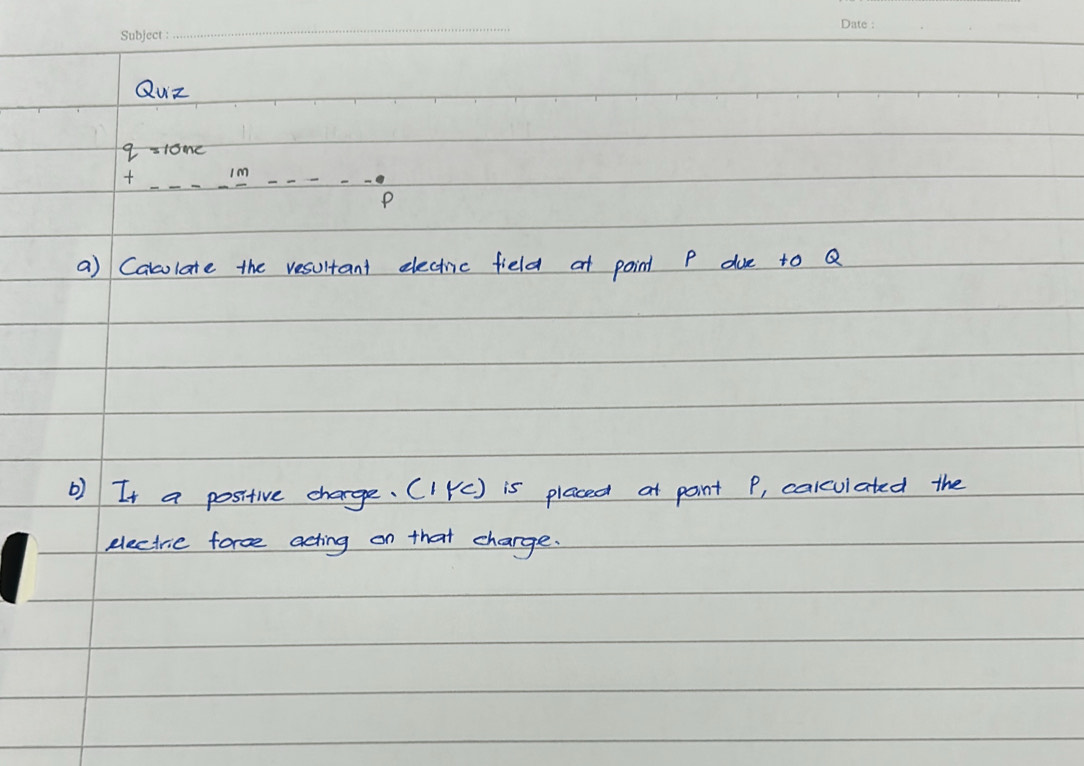 Subject :
Date :
Quiz
q = 10nc
+ 1m
P
a) Calculate the resultant electric field at point P due to Q
b) If a positive charge. (1 μc) is placed at point P, calculated the
electric force acting on that charge.